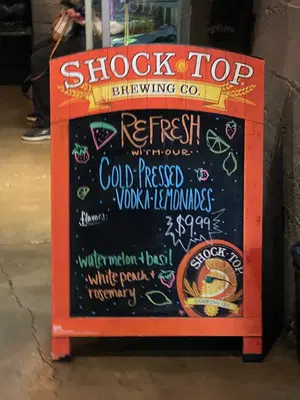 SHOCK TOP
BREWING CO.
REFRESH
WITH OUR
COLD-PRESSED
VODKA-LEMONADES
flavors:
$9.99
watermelon + basil
white peach +
rosemary
SHOCK TOP
BREWING CO
SHOCK TOP